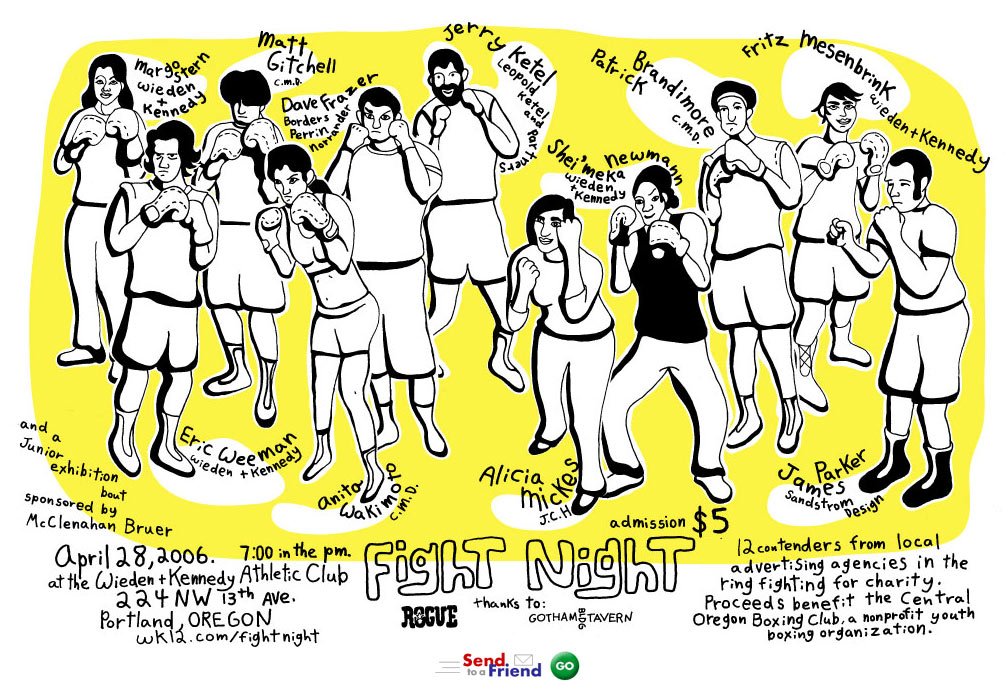 Margo
Stern
Wieden
+
Kennedy
Matt
Gitchell
C.M.D.
Dave Frazer
Borders
Perrin
Norrander
Jerry Ketel
Leopold
Ketel
and
Partners
Shei'meka
Newmann
Wieden
+ Kennedy
Patrick
Brandimore
C.M.D.
Fritz Mesenbrink
Wieden + Kennedy
and a
Junior
exhibition
bout
sponsored by
McClenahan Bruer
Eric Weeman
Wieden + Kennedy
Anita
Wakimoto
C.M.D.
Alicia
Mickes
J.C.H
James Parker
Sandstrom
Design
admission $5
April 28, 2006. 7:00 in the pm.
at the Wieden + Kennedy Athletic Club
224 NW 13th Ave.
Portland, OREGON
wk12.com/fightnight
Fight Night
ROGUE
thanks to:
GOTHAM BLDG TAVERN
12 contenders from local
advertising agencies in the
ring fighting for charity.
Proceeds benefit the Central
Oregon Boxing Club, a nonprofit youth
boxing organization.
Send
to a Friend
GO